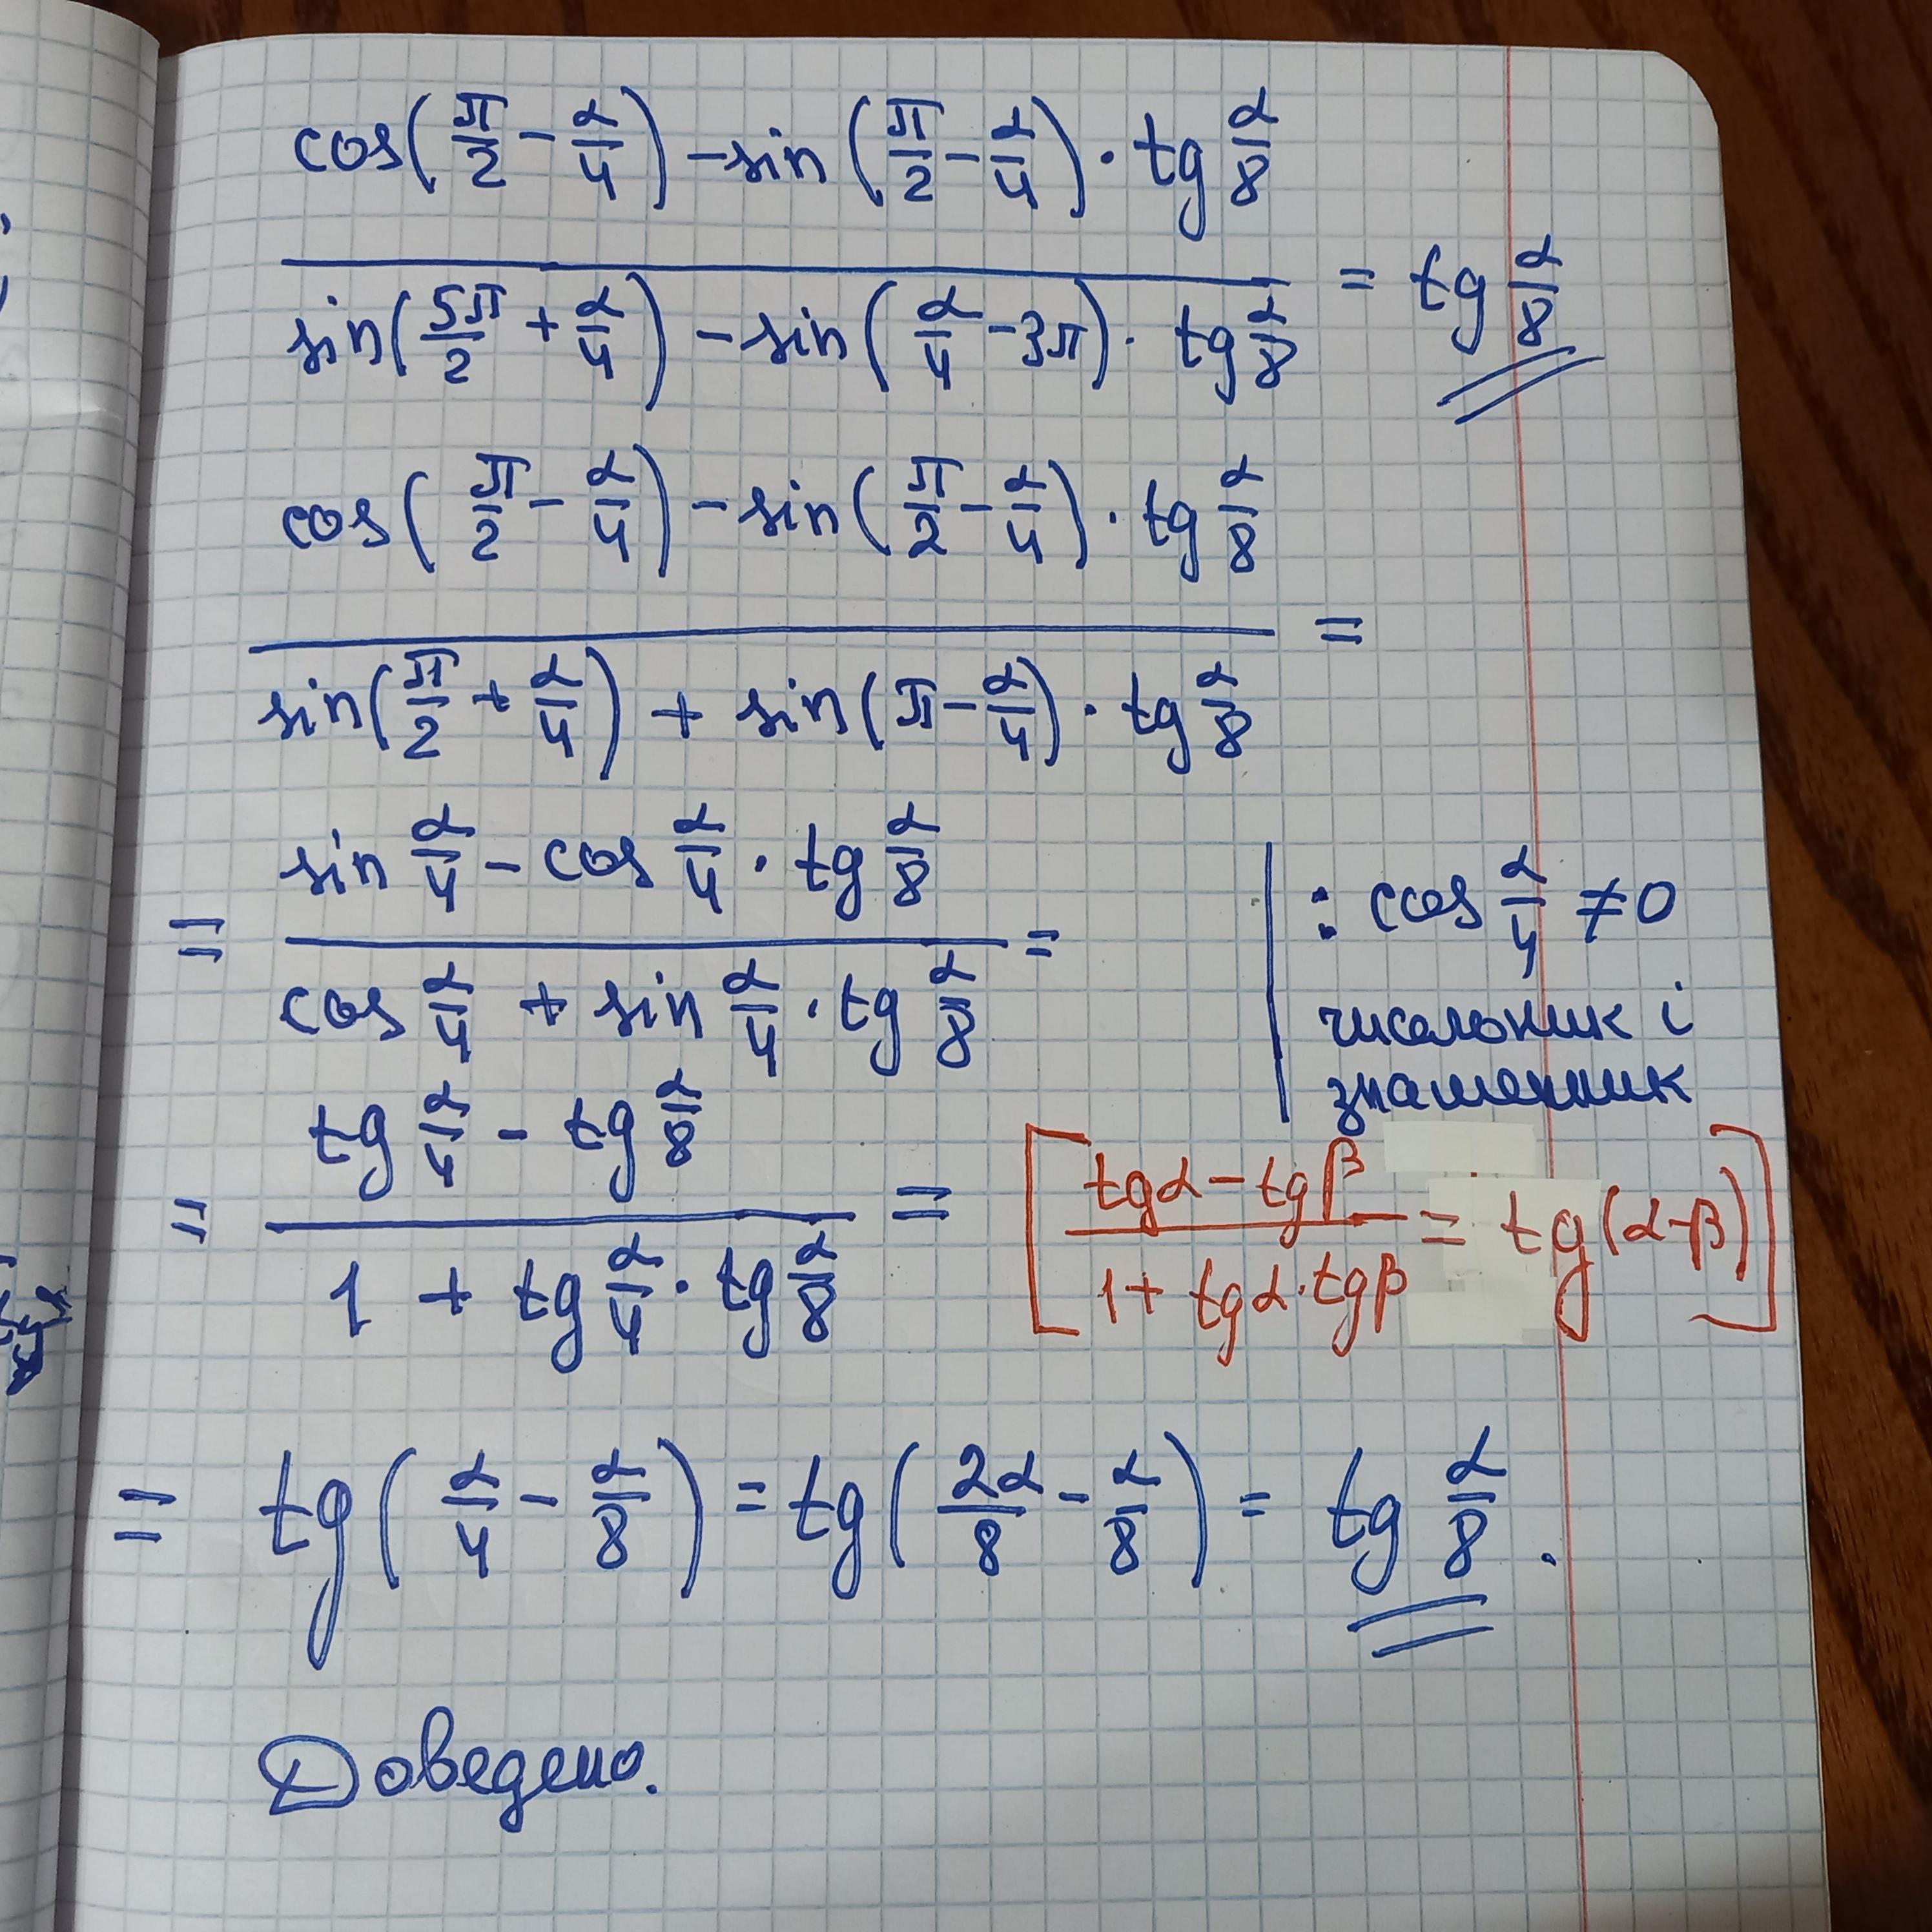 cos(π/2 - α/4) - sin(π/2 - α/4) · tg α/8
/ sin(5π/2 + α/4) - sin(α/4 - 3π) · tg α/8 = tg α/8
cos(π/2 - α/4) - sin(π/2 - α/4) · tg α/8
/ sin(π/2 + α/4) + sin(π - α/4) · tg α/8 =
= sin α/4 - cos α/4 · tg α/8
/ cos α/4 + sin α/4 · tg α/8 =
: cos α/4 ≠ 0
чисельник і
знаменник
= tg α/4 - tg α/8
/ 1 + tg α/4 · tg α/8 =
[tgα - tgβ / 1 + tgα · tgβ = tg(α-β)]
= tg(α/4 - α/8) = tg(2α/8 - α/8) = tg α/8.
Доведено.